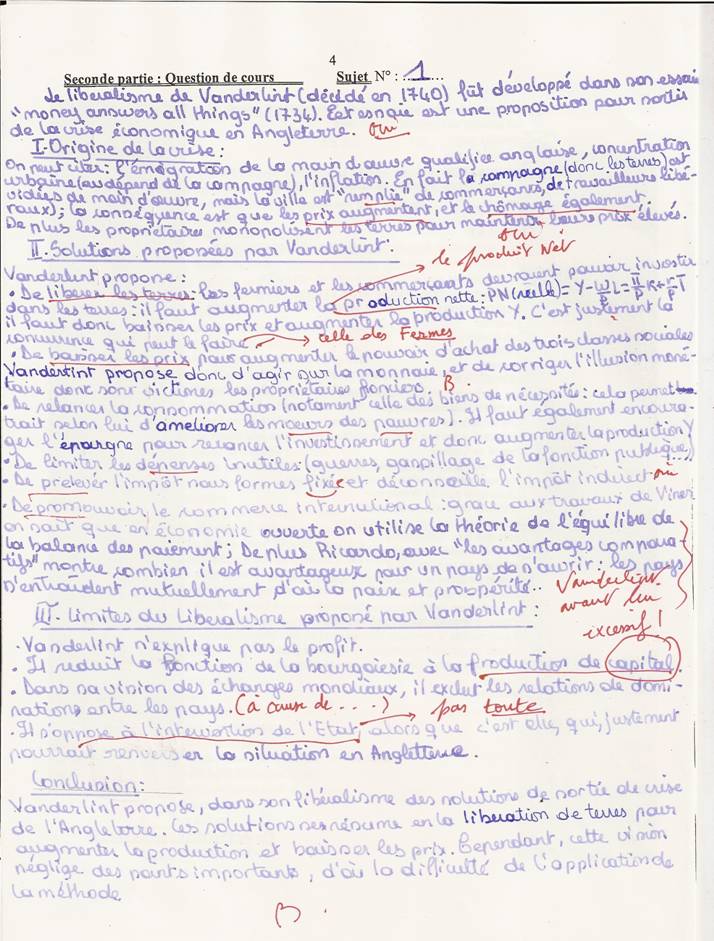 4
Seconde partie : Question de cours Sujet N° : 1
Le liberalisme de Vanderlint (décédé en 1740) fût développé dans son essai
"money answers all things" (1734). Cet est une proposition pour sortir
de la crise économique en Angleterre. oui
I-Origine de la crise :
On peut citer : l'émigration de la main d'œuvre qualifiée anglaise, concentration
urbaine (au dépend de la campagne), l'inflation. En fait la campagne (donc les terres) est
vidées de main d'œuvre, mais la ville est "remplie" de commerçants, de travailleurs libé-
raux) ; la conséquence est que les prix augmentent, et le chômage également.
De plus les propriétaires monopolisent les terres pour maintenir leurs prix élevés.
oui
II-Solutions proposées par Vanderlint :
le produit Net
Vanderlint propose :
• De liberer les terres : les fermiers et les commerçants devraient pouvoir investir
dans les terres : il faut augmenter la production nette : PN (réelle) = Y -
il faut donc baisser les prix et augmenter la production Y. C'est justement la
concurrence qui peut le faire. celle des Fermes
• De baisser les prix pour augmenter le pouvoir d'achat des trois classes sociales
Vanderlint propose donc d'agir sur la monnaie, et de corriger l'illusion moné-
taire dont sont victimes les propriétaires fonciers. B.
• De relancer la consommation (notament celle des biens de nécessités : cela permet
trait selon lui d'ameliorer les mœurs des pauvres). Il faut également encoura-
ger l'épargne pour relancer l'investissement et donc augmenter la production Y
• De limiter les dépenses inutiles (guerres, gaspillage de la fonction publique, ...
• De prelever l'impôt sous formes fixe et déconseille l'impôt indirect oui
• De promouvoir le commerce international : grace aux travaux de Viner
on sait que en économie ouverte on utilise la théorie de l'équilibre de
la balance des paiement ; De plus Ricardo, avec "les avantages compara-
tifs" montre combien il est avantageux pour un pays de s'ouvrir : les pays
s'entraident mutuellement d'où la paix et prospérité. Vanderlint
avant lui
excessif !
III-Limites du Liberalisme proposé par Vanderlint :
• Vanderlint n'explique pas le profit.
• Il reduit la fonction de la bourgoiesie à la production de capital
• Dans sa vision des échanges mondiaux, il exclut les relations de domi-
nations entre les pays. (à cause de ....) pas toute
• Il s'oppose à l'intervention de l'Etat, alors que c'est elle, qui, justement
pourrait renverser la situation en Angleterre.
Conclusion :
Vanderlint propose, dans son libéralisme des solutions de sortie de crise
de l'Angleterre. Ces solutions se résume en la liberation de terres pour
augmenter la production et baisser les prix. Cependant, cette vision
néglige des points importants, d'où la difficulté de l'application de
la méthode
B